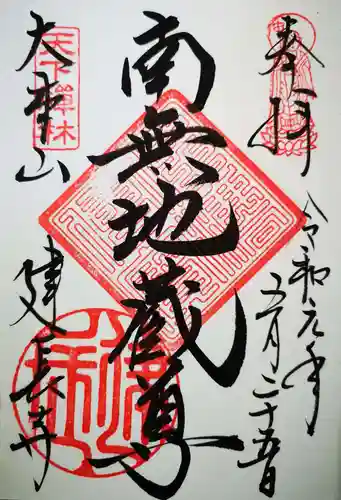 奉拝
令和元年
五月二十五日
南無地蔵尊
天下禅林
大本山
建長寺